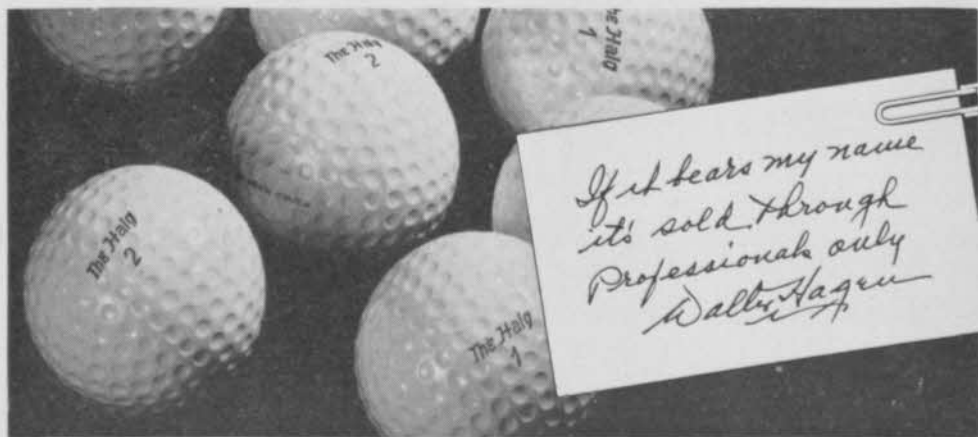 The Haig
2
The Haig
1
The Haig
2
The Haig
1
If it bears my name
it's sold through
Professionals only
Walter Hagen